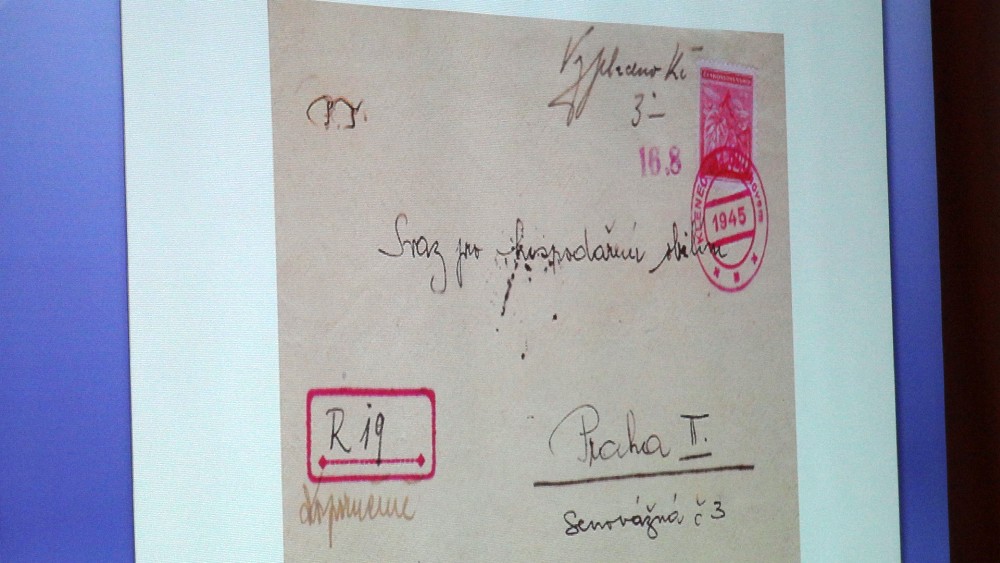 Vyplaceno Kč
3-
16.8
1945
Svaz pro hospodaření obilím
R 19
Doporučeně
Praha II.
Senovážná č 3